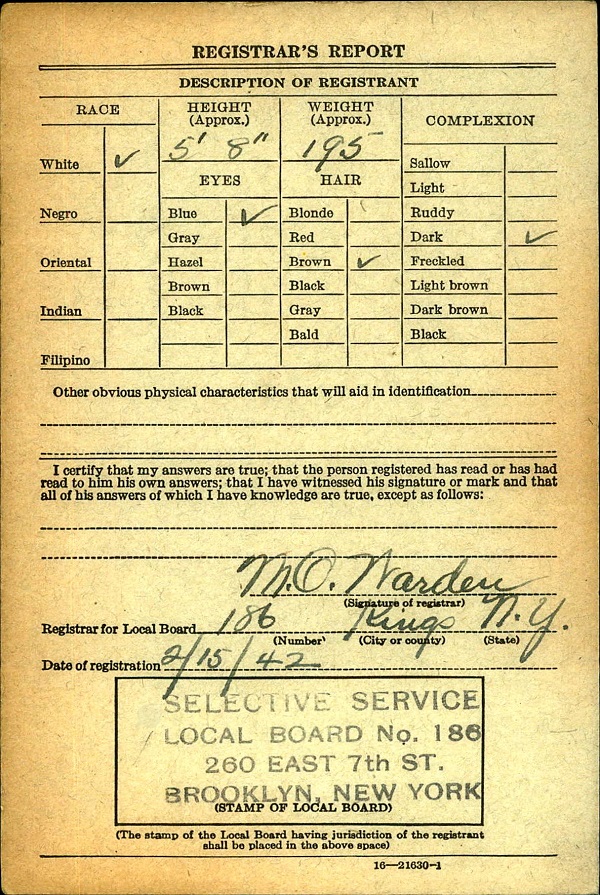 REGISTRAR'S REPORT
DESCRIPTION OF REGISTRANT
RACE
HEIGHT
(Approx.)
WEIGHT
(Approx.)
COMPLEXION
5' 8"
195
White ✓
Sallow
EYES
HAIR
Light
Negro
Blue ✓
Blonde
Ruddy
Gray
Red
Dark ✓
Oriental
Hazel
Brown ✓
Freckled
Brown
Black
Light brown
Indian
Black
Gray
Dark brown
Bald
Black
Filipino
Other obvious physical characteristics that will aid in identification
I certify that my answers are true; that the person registered has read or has had
read to him his own answers; that I have witnessed his signature or mark and that
all of his answers of which I have knowledge are true, except as follows:
M.O. Warden
(Signature of registrar)
Registrar for Local Board 186 Kings N.Y.
(Number) (City or county) (State)
Date of registration 2/15/42
SELECTIVE SERVICE
LOCAL BOARD No. 186
260 EAST 7th ST.
BROOKLYN, NEW YORK
(STAMP OF LOCAL BOARD)
(The stamp of the Local Board having jurisdiction of the registrant
shall be placed in the above space)
16—21630-1